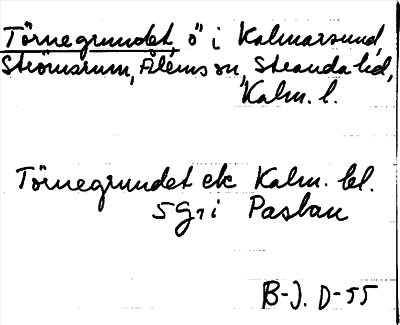 Törnegrundet, ö i Kalmarsund,
Strömsrum, Ålems sn, Stranda hd,
Kalm. l.
Törnegrundet ek Kalm. bl.
5 g i
B-J. D-55